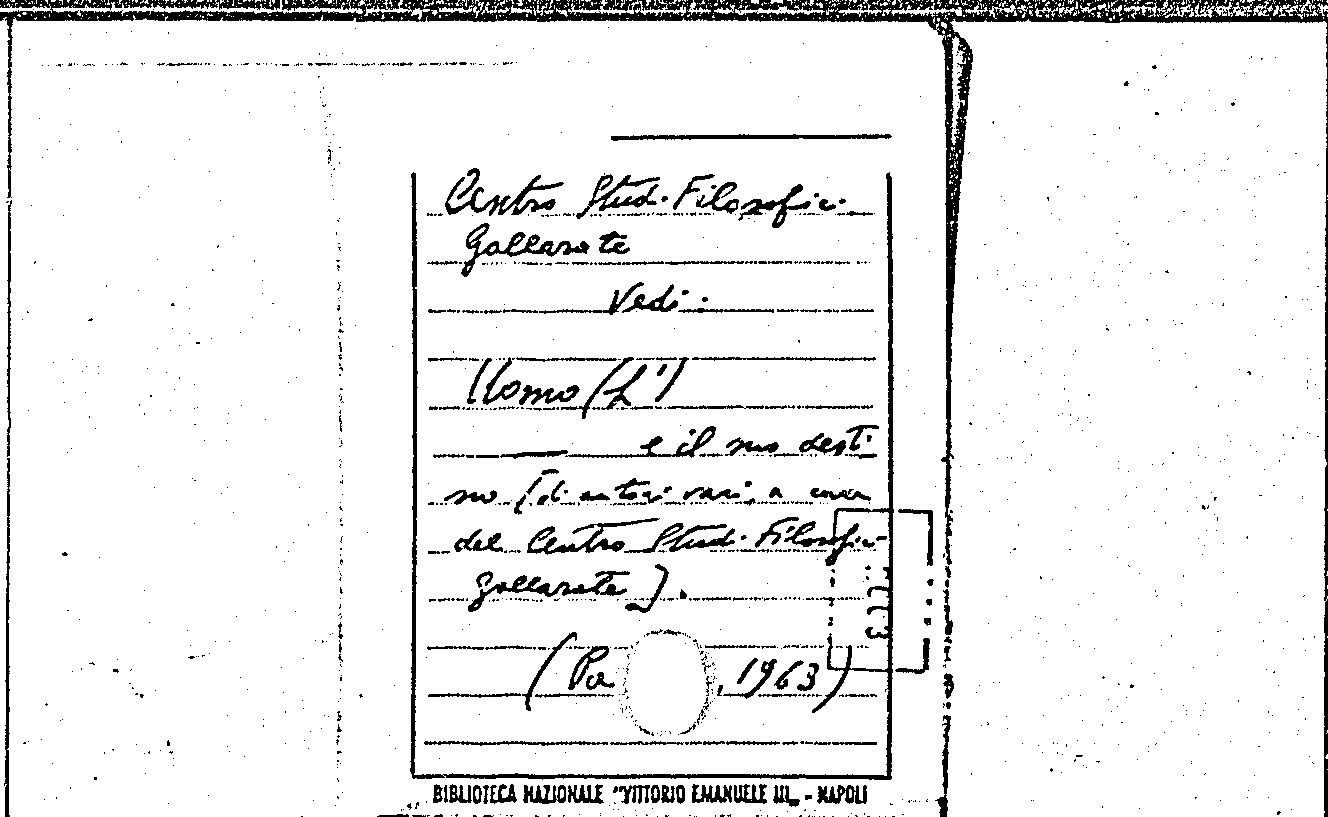 Centro Studi Filosofici
Gallarate
Vedi:
Uomo (L')
e il suo desti-
no [di autori vari, a cura
del Centro Studi Filosofici
Gallarate].
(Pa , 1963)
BIBLIOTECA NAZIONALE "VITTORIO EMANUELE III„ - NAPOLI